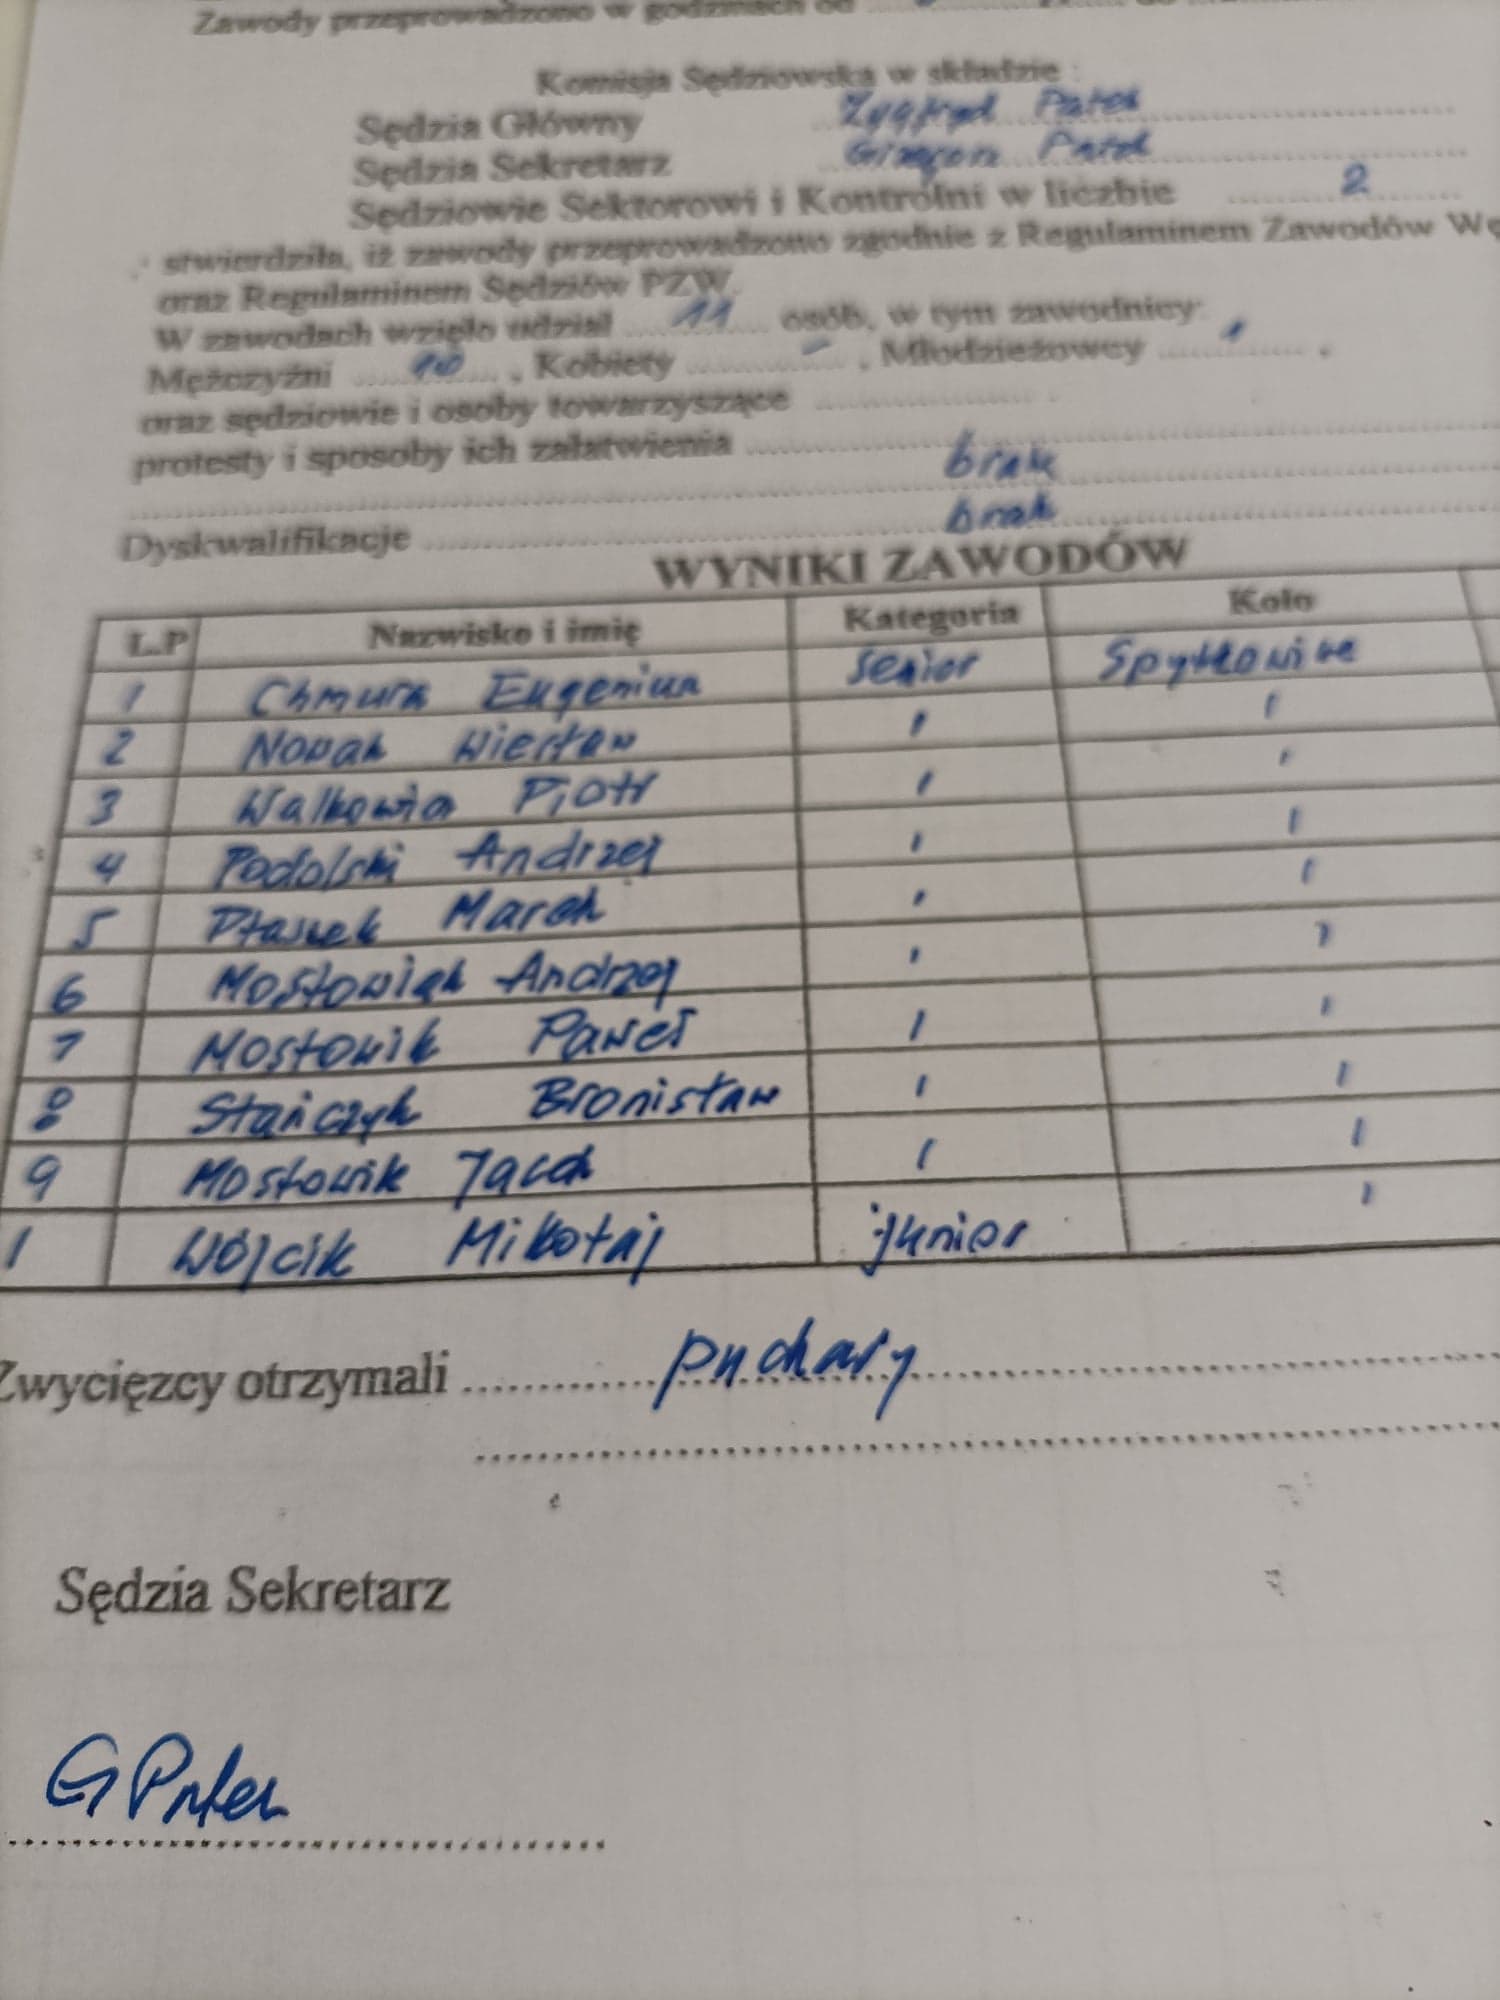 Zawody przeprowadzono w godzinach od
Komisja Sędziowska w składzie :
Sędzia Główny Zygfryd Patek
Sędzia Sekretarz Grzegorz Patek
Sędziowie Sektorowi i Kontrolni w liczbie 2
stwierdziła, iż zawody przeprowadzono zgodnie z Regulaminem Zawodów Wę
oraz Regulaminem Sędziów PZW.
W zawodach wzięło udział 11 osób, w tym zawodnicy:
Mężczyźni 10, Kobiety -, Młodzieżowcy 1.
oraz sędziowie i osoby towarzyszące
protesty i sposoby ich załatwienia brak
Dyskwalifikacje brak
WYNIKI ZAWODÓW
L.P Nazwisko i imię Kategoria Koło
1 Chmura Eugeniusz senior Spytkowice
2 Nowak Wiesław " "
3 Piotr " "
4 Podolski Andrzej " "
5 Ptaszek Marek " "
6 Andrzej " "
7 Mostowik Paweł " "
8 Stańczyk Bronisław " "
9 Mostowik Jacek " "
1 Wójcik Mikołaj junior "
Zwycięzcy otrzymali puchary
Sędzia Sekretarz
G Patek